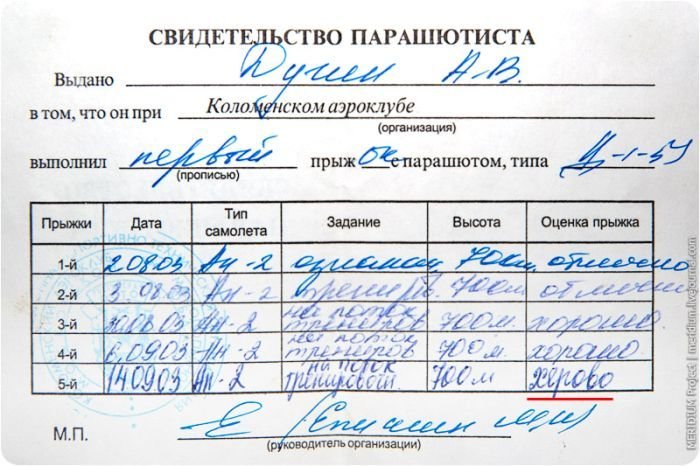 СВИДЕТЕЛЬСТВО ПАРАШЮТИСТА
Выдано А.В.
в том, что он при Коломенском аэроклубе
(организация)
выполнил первый прыжок с парашютом, типа
(прописью)
Прыжки Дата Тип самолета Задание Высота Оценка прыжка
1-й 20803 Ан-2 ознаком. 700м. отлично
2-й 3.0803 Ан-2 700м. отлично
3-й 0803 Ан-2 700м. хорошо
4-й 6.0903 Ан-2 700м. хорошо
5-й 140903 Ан-2 700м херово
М.П.
(руководитель организации)
MERIDIUM Project | meridium.livejournal.com